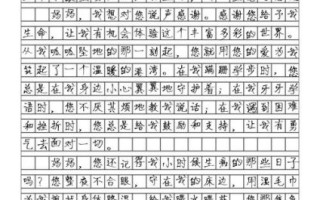 妈妈，我想对您说声感谢。感谢您给予我
生命，让我有机会体验这个丰富多彩的世界。
从我呱呱坠地的那一刻起，您就用您的爱为我
筑起了一个温暖的港湾。在我蹒跚学步时，您
总是在我身边小心翼翼地守护着；在我牙牙学
语时，您不厌其烦地教我说话；在我遇到困难
和挫折时，您总是给我鼓励和支持，让我有勇
气去面对一切。
妈妈，您还记得我小时候生病的那些日子
吗？您整夜不合眼，守在我的床边，用湿毛巾